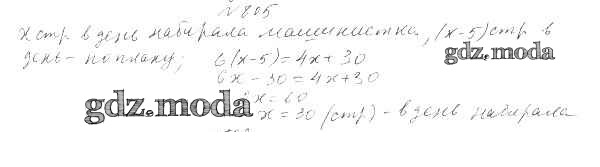 № 805
x стр в день набирала машинистка, (x-5) стр в
день - по плану; 6(x-5) = 4x + 30
gdz.moda
6x - 30 = 4x + 30
2x = 60
gdz.moda
x = 30 (стр) - в день набирала